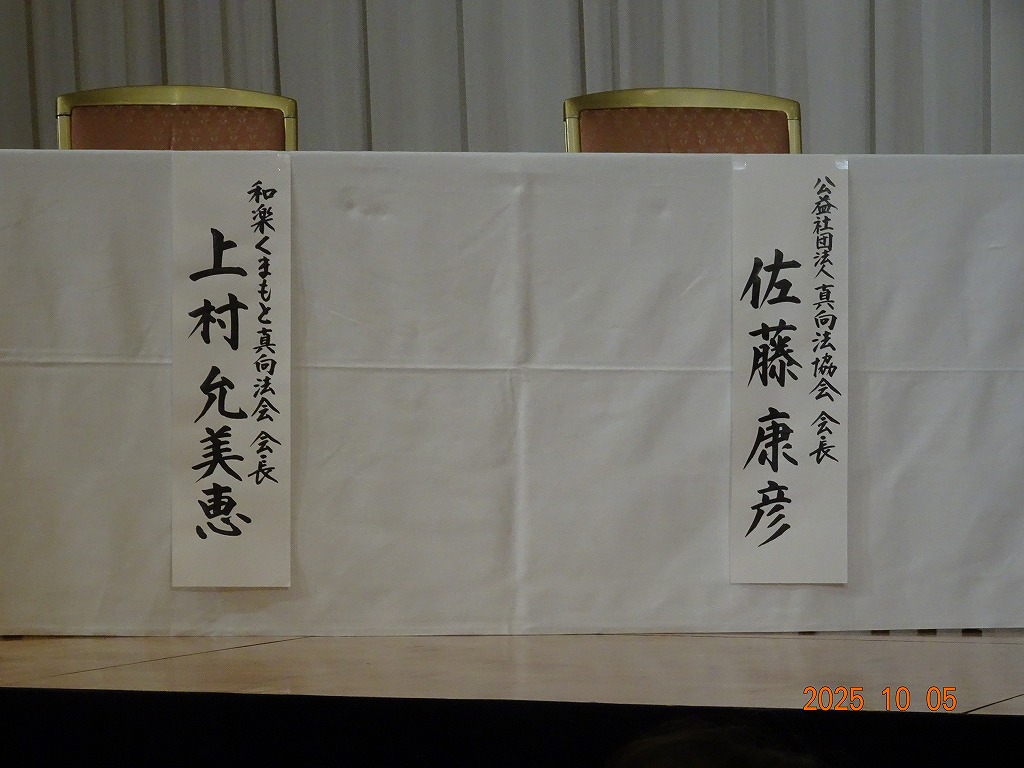 公益社団法人 真向法協会 会長
佐藤 康彦
和楽くまもと真向法会 会長
上村 允美恵
2025 10 05